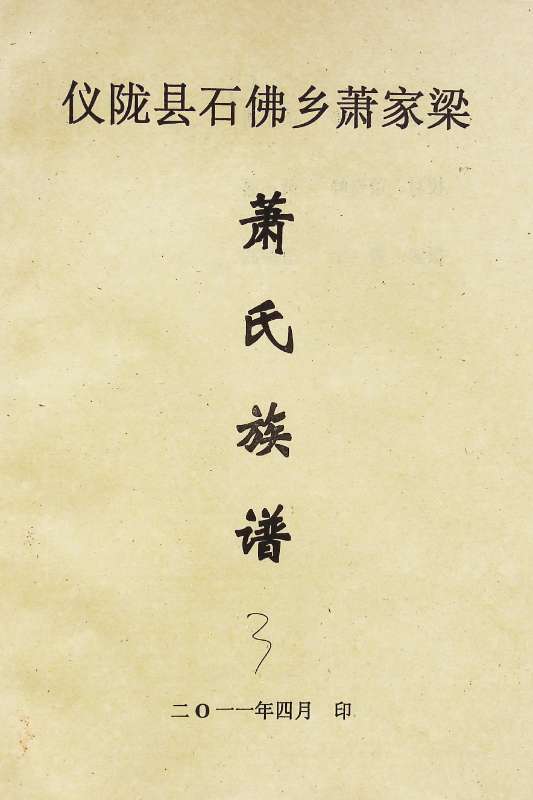 仪陇县石佛乡萧家梁
萧氏族谱
3
二O一一年四月 印